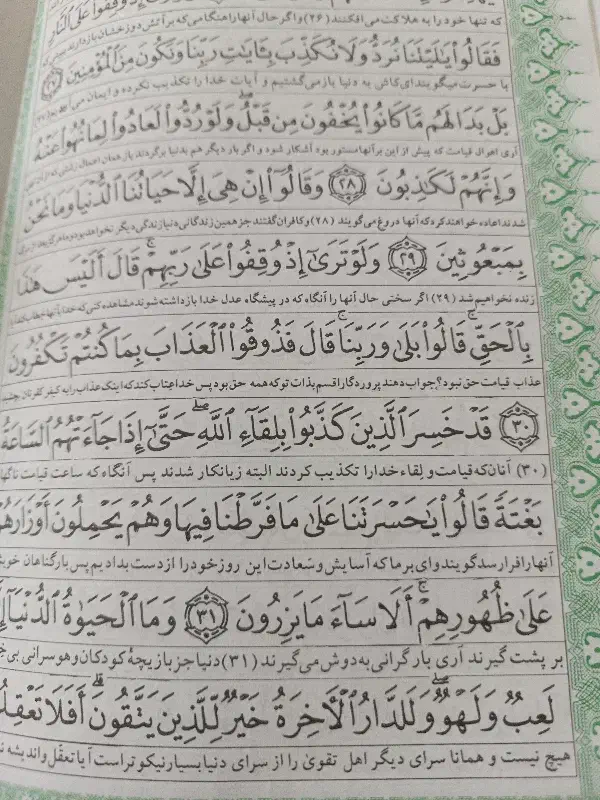 وُقِفُوا۟ عَلَى ٱلنَّارِ
که تنها خود را به هلاکت می افکنند (۲۶) و اگر حال آنها را هنگامی که بر آتش دوزخشان بازدارند
فَقَالُوا۟ يَٰلَيْتَنَا نُرَدُّ وَلَا نُكَذِّبَ بِـَٔايَٰتِ رَبِّنَا وَنَكُونَ مِنَ ٱلْمُؤْمِنِينَ
با حسرت میگویند ای کاش به دنیا باز می گشتیم و آیات خدا را تکذیب نکرده و ایمان می
بَلْ بَدَا لَهُم مَّا كَانُوا۟ يُخْفُونَ مِن قَبْلُ ۖ وَلَوْ رُدُّوا۟ لَعَادُوا۟ لِمَا نُهُوا۟ عَنْهُ
آری احوال قیامت که پیش از این بر آنها مستور بود آشکار شود و اگر بار دیگر هم بدنیا برگردند باز همان اعمال زشتی که از آن
وَإِنَّهُمْ لَكَٰذِبُونَ ﴿٢٨﴾ وَقَالُوٓا۟ إِنْ هِىَ إِلَّا حَيَاتُنَا ٱلدُّنْيَا وَمَا نَحْنُ
شدند اعاده خواهند کرد که آنها دروغ می گویند (۲۸) و کافران گفتند جز همین زندگانی دنیا زندگی دیگر نخواهد بود و ما هرگز بعد از مرگ
بِمَبْعُوثِينَ ﴿٢٩﴾ وَلَوْ تَرَىٰٓ إِذْ وُقِفُوا۟ عَلَىٰ رَبِّهِمْ ۚ قَالَ أَلَيْسَ هَٰذَا
زنده نخواهیم شد (۲۹) اگر سختی حال آنها را آنگاه که در پیشگاه عدل خدا بازداشته شوند مشاهده کنی که خدا به آنها خطاب کند
بِٱلْحَقِّ ۚ قَالُوا۟ بَلَىٰ وَرَبِّنَا ۚ قَالَ فَذُوقُوا۟ ٱلْعَذَابَ بِمَا كُنتُمْ تَكْفُرُونَ
عذاب قیامت حق نبود؟ جواب دهند پروردگارا قسم بذات تو که همه حق بود پس خدا عتاب کند که اینک عذاب را به کیفر کفرتان
﴿٣٠﴾ قَدْ خَسِرَ ٱلَّذِينَ كَذَّبُوا۟ بِلِقَآءِ ٱللَّهِ ۖ حَتَّىٰٓ إِذَا جَآءَتْهُمُ ٱلسَّاعَةُ
(۳۰) آنان که قیامت و لقاء خدا را تکذیب کردند البته زیانکار شدند پس آنگاه که ساعت قیامت
بَغْتَةً قَالُوا۟ يَٰحَسْرَتَنَا عَلَىٰ مَا فَرَّطْنَا فِيهَا وَهُمْ يَحْمِلُونَ أَوْزَارَهُمْ
آنها را فرا رسد گویند وای بر ما که آسایش و سعادت این روز خود را از دست بدادیم پس بار گناهان خویش
عَلَىٰ ظُهُورِهِمْ ۚ أَلَا سَآءَ مَا يَزِرُونَ ﴿٣١﴾ وَمَا ٱلْحَيَوٰةُ ٱلدُّنْيَآ
بر پشت گیرند آری بار گرانی به دوش می گیرند (۳۱) دنیا جز بازیچه کودکان و هوسرانی بی
لَعِبٌ وَلَهْوٌ ۖ وَلَلدَّارُ ٱلْـَٔاخِرَةُ خَيْرٌ لِّلَّذِينَ يَتَّقُونَ ۗ أَفَلَا
هیچ نیست و همانا سرای دیگر اهل تقوی را از سرای دنیا بسیار نیکوتر است آیا تعقل و اندیشه